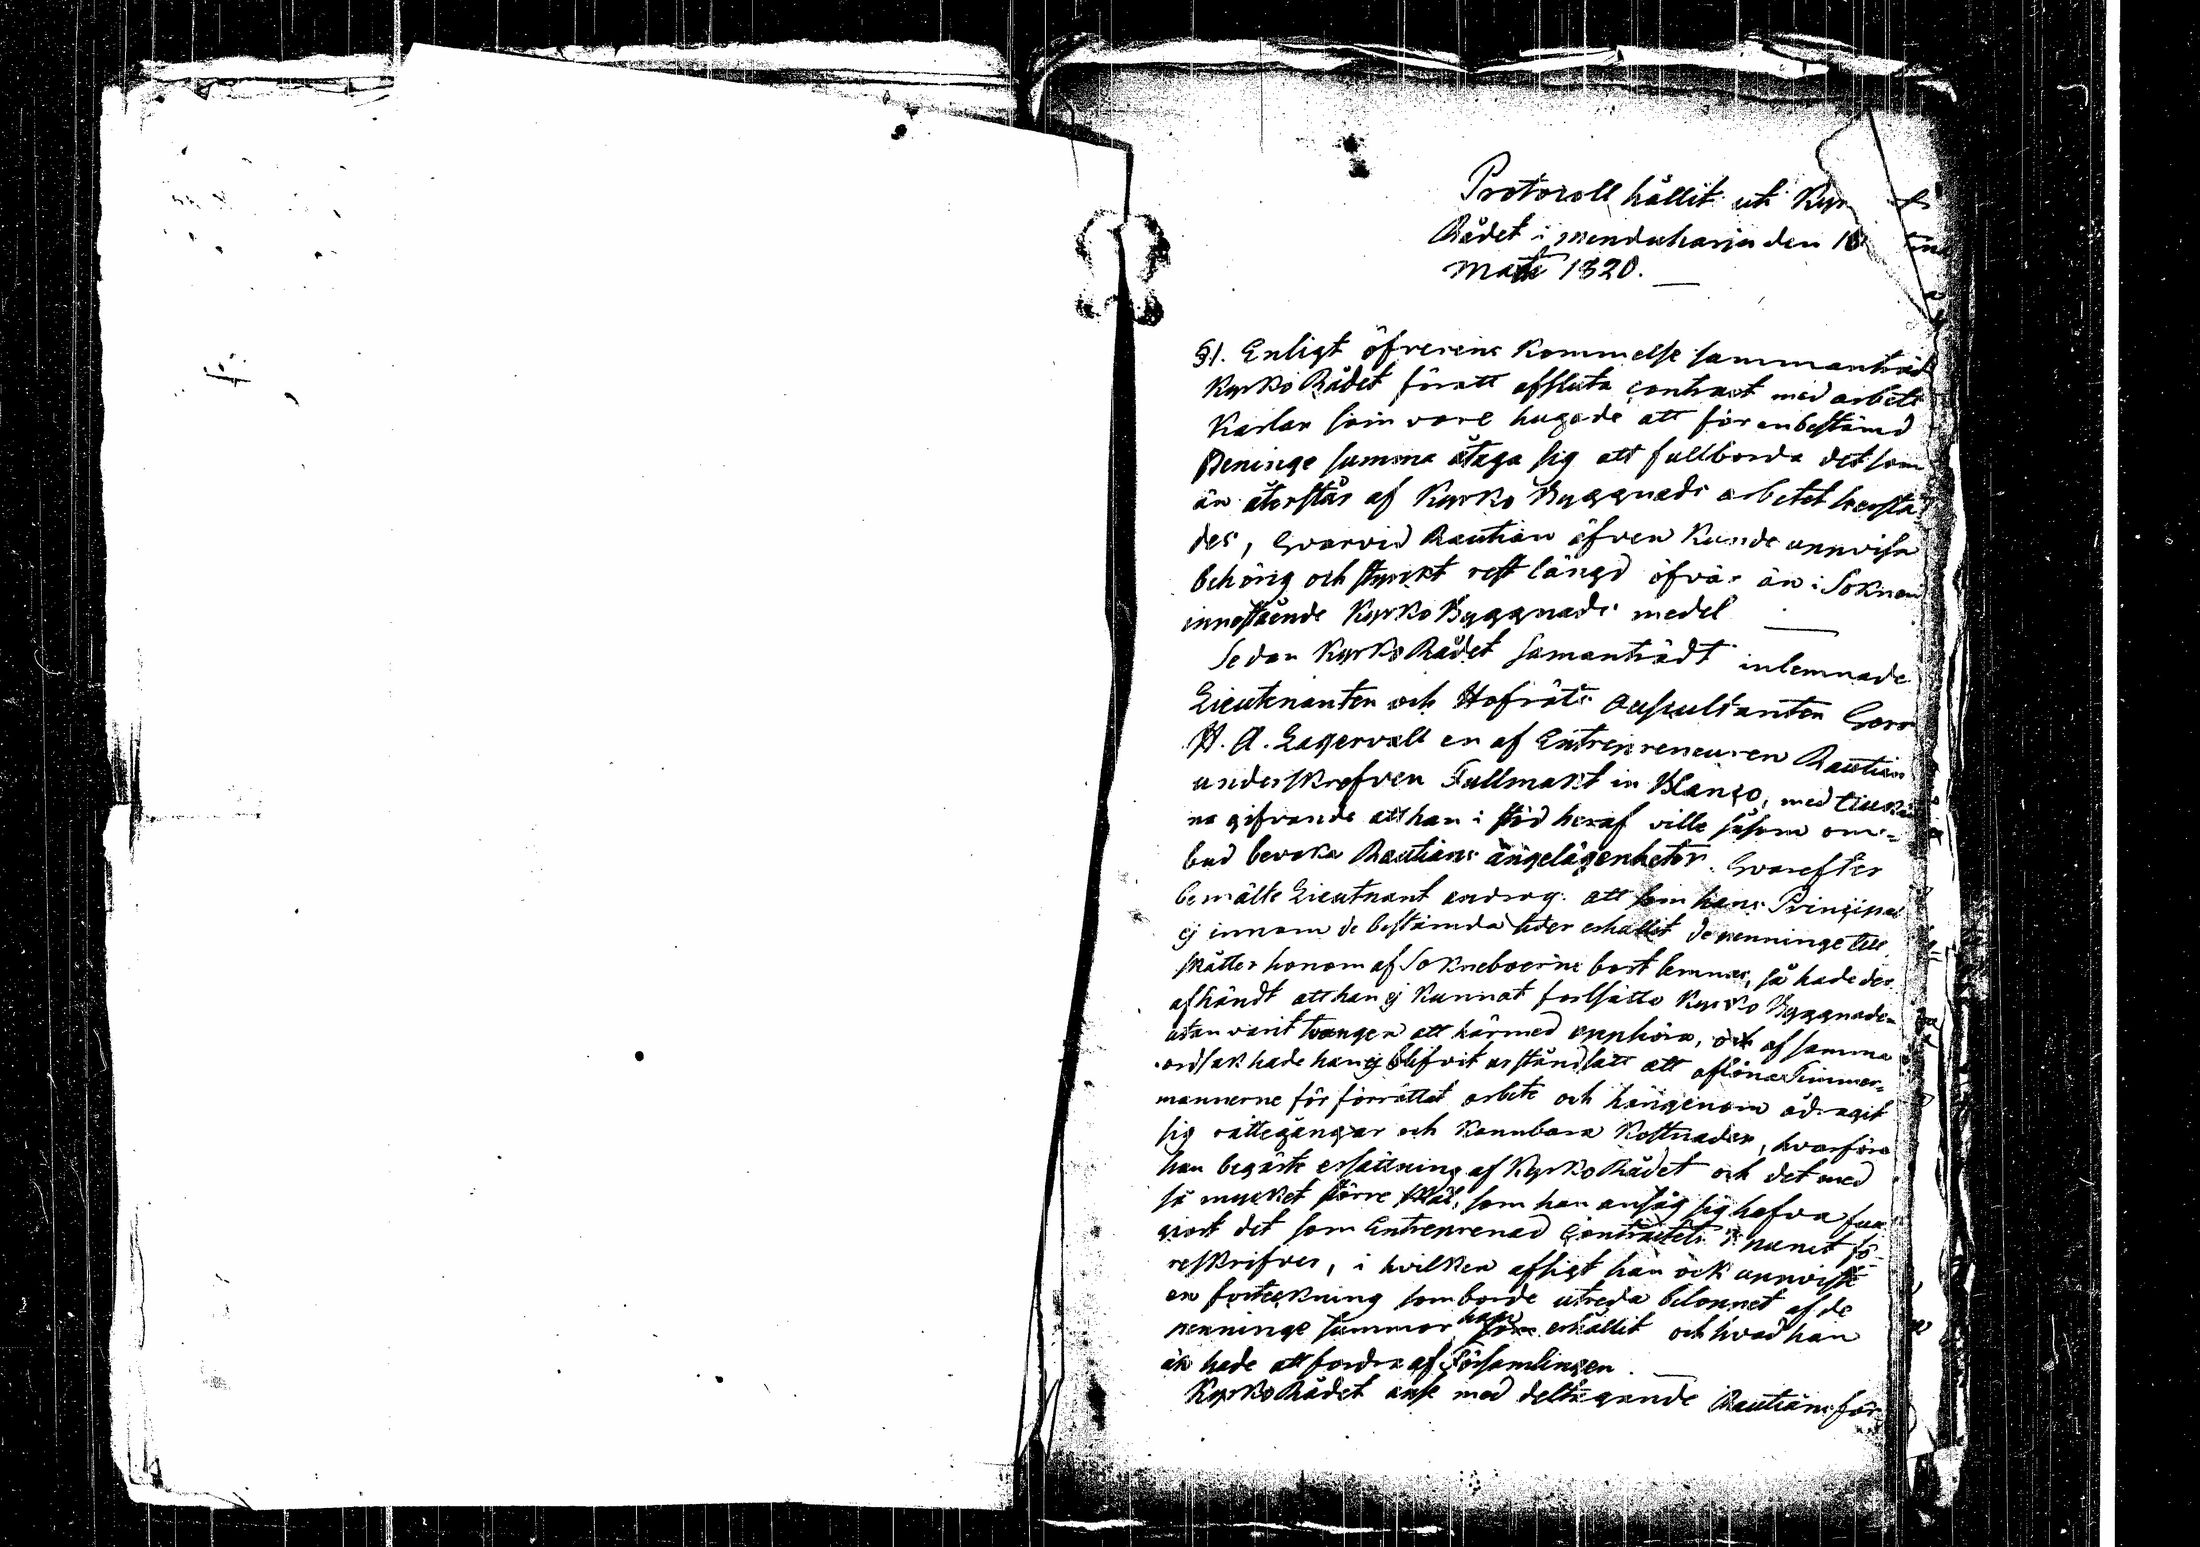 Protocoll hållit uti Kyr
Rådet i Menduharju den 18
Maii 1820.
§1. Enligt öfverens kommelse sammanträd
Kyrko Rådet föratt affluta contract med arbets
Karlar som vore hugade att för en bestämd
Peninge summa åtaga sig att fullborda det som
än återstår af Kyrko Byggnads arbetet härstä
des, Hvarvid Rautiain äfven kunde uppvisa
behörig och styrckt rest längd öfver än i Soknen
innestående Kyrko Byggnads medel
Sedan Kyrko Rådet samanträdt inlemnade
Lieutenanten och Hofräts Auscultanten Herr
H. A. Lagervall en af Entrepreneuren Rautiain
underskrefven Fullmakt in Blanco, med tilkän
na gifvande att han i stöd heraf ville såsom om=
bud bevaka Rautians angelägenheter. Hvarefter
bemälte Lieutnant androg: att som hans Principal
ej innom de bestämda tider erhållit de penninge till
skötter honom af Sokneboerne bort lemnas, så hade det
afhändt att han ej kunnat fortsätta Kyrko Byggnaden
utan varit tvungen att härmed upphöra, och af samma
ordsak hade han ej blifvit iståndsatt att aflöna Timmer=
mannerne för förrättat arbete och härigenom ådragit
sig rättegångar och kännbara Kostnader, hvarföre
han begärte ersättning af Kyrko Rådet och det med
så mycket större skäl, som han ansåg sig hafva full
giort det som Entreprenad Contractets 1 punct fö=
reskrifver, i hvilken afsigt han ock uppviste
en forteckning som borde utreda beloppet af de
penninge summor han erhållit och hvad han
än hade att fordra af Församlingen.
Kyrko Rådet anse med deltagande Rautians för